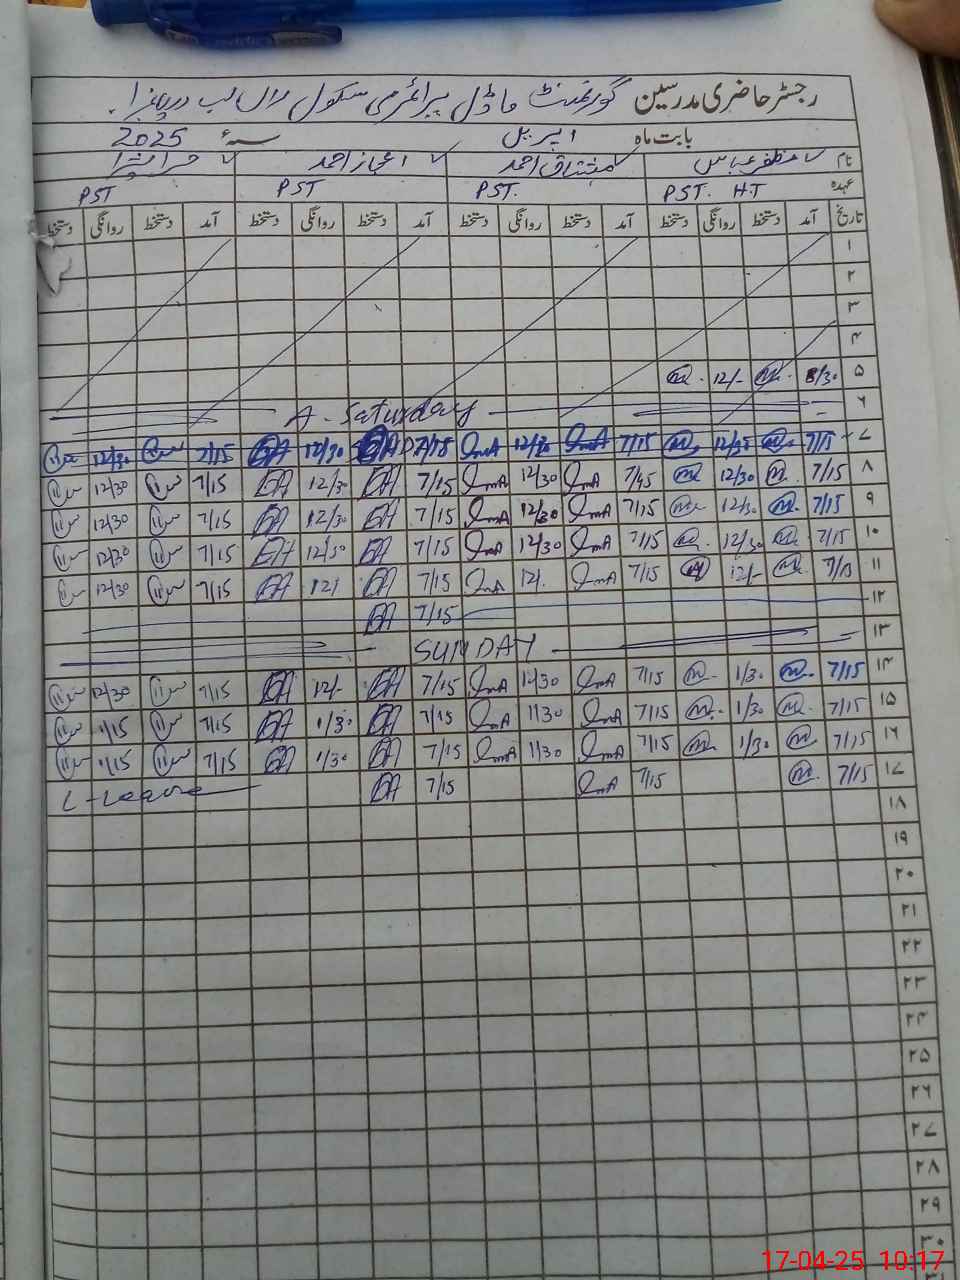 رجسٹر حاضری مدرسین گورنمنٹ ماڈل پرائمری سکول
بابت ماہ اپریل سنہء 2025
نام مظفر عباس مشتاق احمد اعجاز احمد
عہدہ PST. H.T PST. PST PST
تاریخ آمد دستخط روانگی دستخط آمد دستخط روانگی دستخط آمد دستخط روانگی دستخط آمد دستخط روانگی دستخط
۱
۲
۳
۴
۵ 8/30 12/-
۶ A - Saturday
۷ 7/15 12/30 7/15 12/30 7/15 12/30 7/15 12/30
۸ 7/15 12/30 7/15 12/30 7/15 12/30 7/15 12/30
۹ 7/15 12/30 7/15 12/30 7/15 12/30 7/15 12/30
۱۰ 7/15 12/30 7/15 12/30 7/15 12/30 7/15 12/30
۱۱ 7/15 12/- 7/15 12/. 7/15 12/ 7/15 12/30
۱۲ 7/15
۱۳ SUNDAY
۱۴ 7/15 1/30 7/15 12/30 7/15 12/- 7/15 12/30
۱۵ 7/15 1/30 7/15 1/30 7/15 1/30 7/15 1/15
۱۶ 7/15 1/30 7/15 1/30 7/15 1/30 7/15 1/15
۱۷ 7/15 7/15 7/15 L-Leave
۱۸
۱۹
۲۰
۲۱
۲۲
۲۳
۲۴
۲۵
۲۶
۲۷
۲۸
۲۹
۳۰
17-04-25 10:17